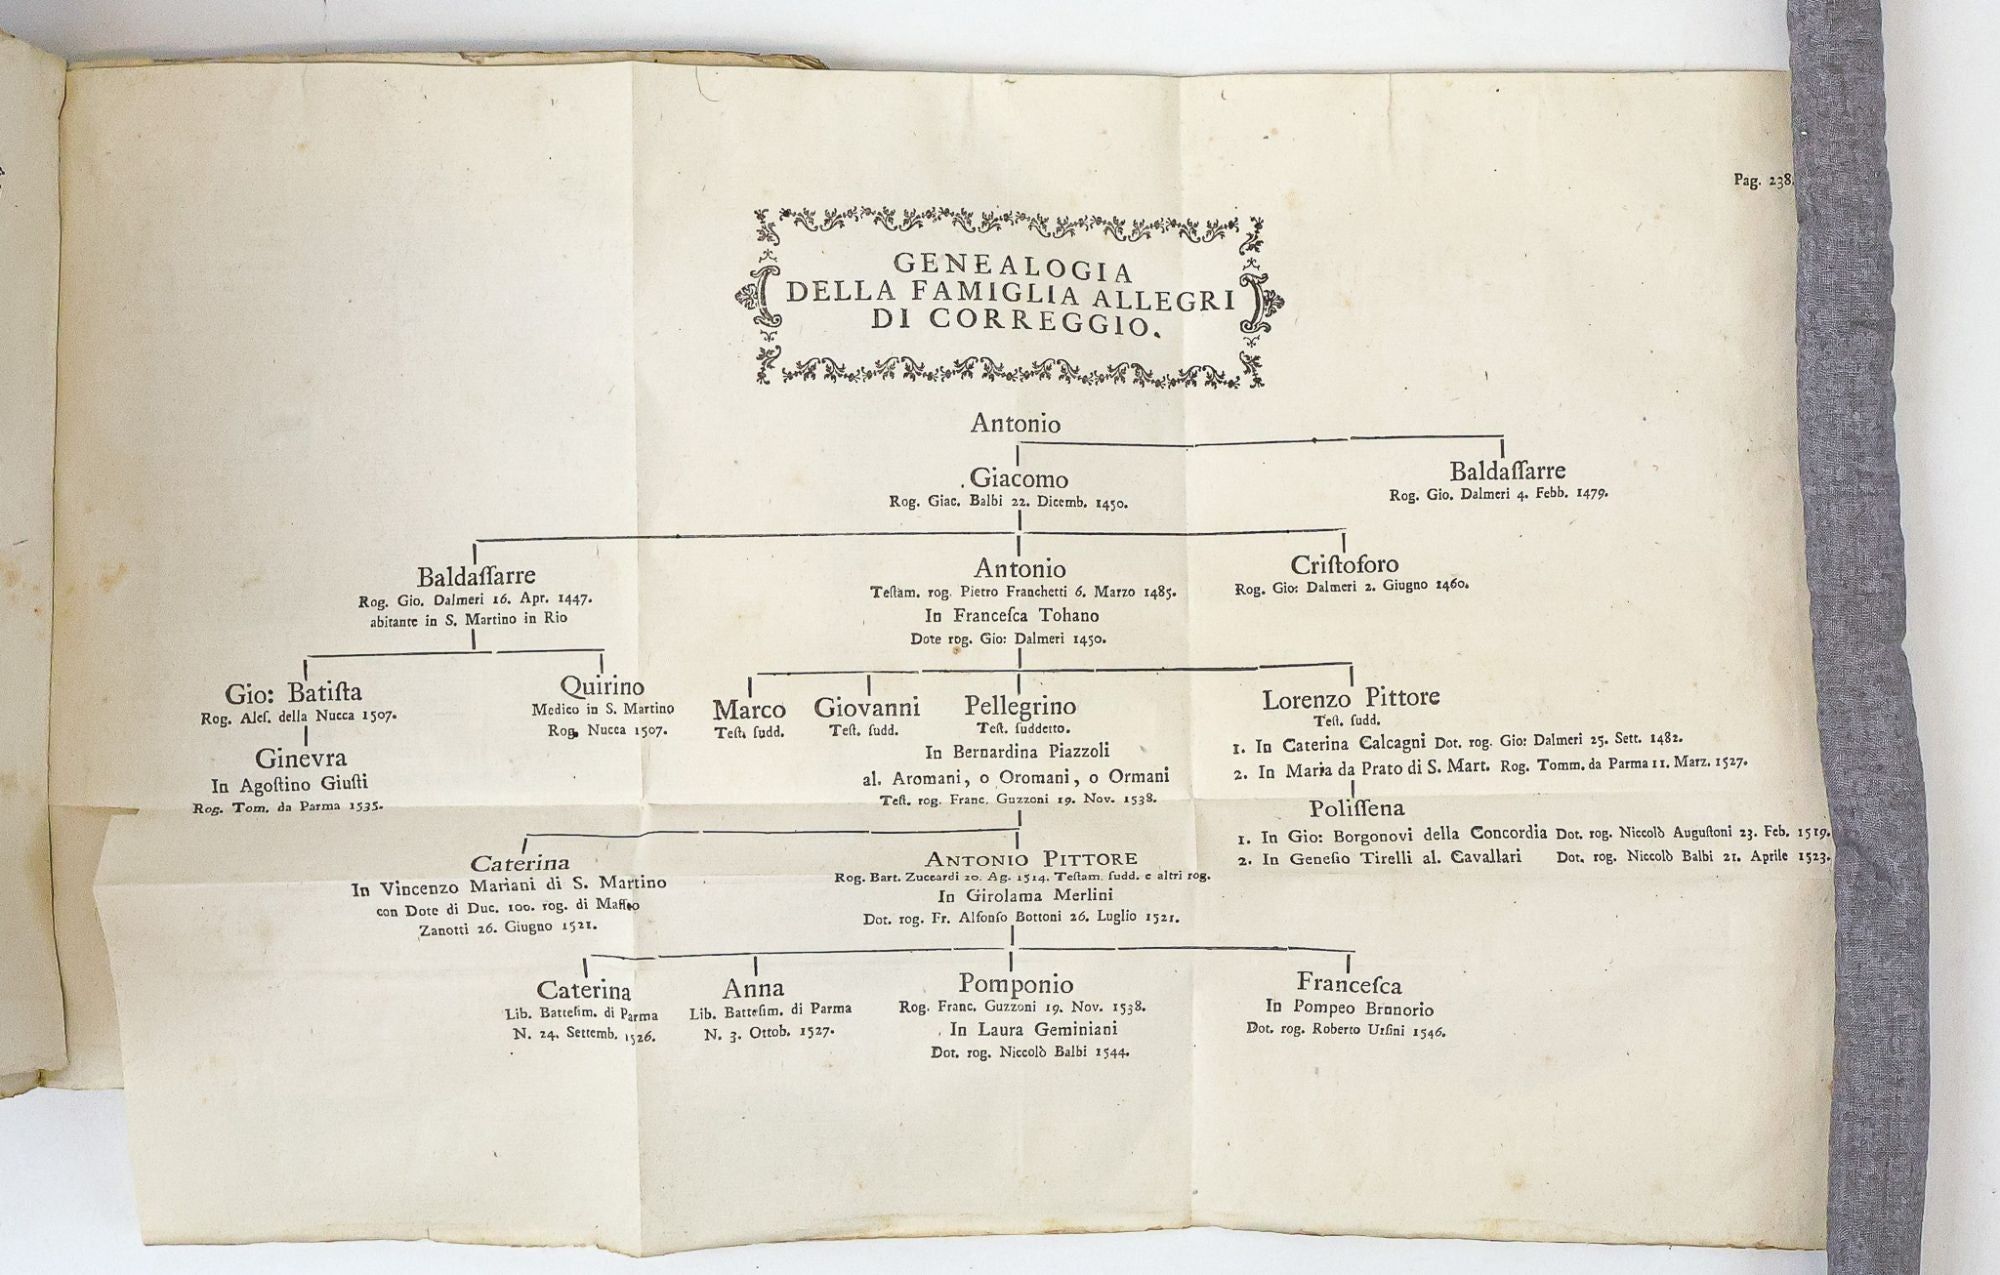 Pag. 238.
GENEALOGIA
DELLA FAMIGLIA ALLEGRI
DI CORREGGIO.
Antonio
Giacomo
Rog. Giac. Balbi 22. Dicemb. 1450.
Baldaſſarre
Rog. Gio. Dalmeri 4. Febb. 1479.
Baldaſſarre
Rog. Gio. Dalmeri 16. Apr. 1447.
abitante in S. Martino in Rio
Antonio
Teſtam. rog. Pietro Franchetti 6. Marzo 1485.
In Franceſca Tohano
Dote rog. Gio: Dalmeri 1450.
Criſtoforo
Rog. Gio: Dalmeri 2. Giugno 1460.
Gio: Batiſta
Rog. Aleſ. della Nucca 1507.
Ginevra
In Agoſtino Giuſti
Rog. Tom. da Parma 1535.
Quirino
Medico in S. Martino
Rog. Nucca 1507.
Marco
Teſt. ſudd.
Giovanni
Teſt. ſudd.
Pellegrino
Teſt. ſuddetto.
In Bernardina Piazzoli
al. Aromani, o Oromani, o Ormani
Teſt. rog. Franc. Guzzoni 19. Nov. 1538.
Lorenzo Pittore
Teſt. ſudd.
1. In Caterina Calcagni Dot. rog. Gio: Dalmeri 25. Sett. 1482.
2. In Maria da Prato di S. Mart. Rog. Tomm. da Parma 11. Marz. 1527.
Poliſſena
1. In Gio: Borgonovi della Concordia Dot. rog. Niccolò Auguſtoni 23. Feb. 1519.
2. In Geneſio Tirelli al. Cavallari Dot. rog. Niccolò Balbi 21. Aprile 1523.
Caterina
In Vincenzo Mariani di S. Martino
con Dote di Duc. 100. rog. di Maffeo
Zanotti 26. Giugno 1521.
ANTONIO PITTORE
Rog. Bart. Zuccardi 20. Ag. 1514. Teſtam. ſudd. e altri rog.
In Girolama Merlini
Dot. rog. Fr. Alfonſo Bottoni 26. Luglio 1521.
Caterina
Lib. Batteſim. di Parma
N. 24. Settemb. 1526.
Anna
Lib. Batteſim. di Parma
N. 3. Ottob. 1527.
Pomponio
Rog. Franc. Guzzoni 19. Nov. 1538.
In Laura Geminiani
Dot. rog. Niccolò Balbi 1544.
Franceſca
In Pompeo Brunorio
Dot. rog. Roberto Urſini 1546.